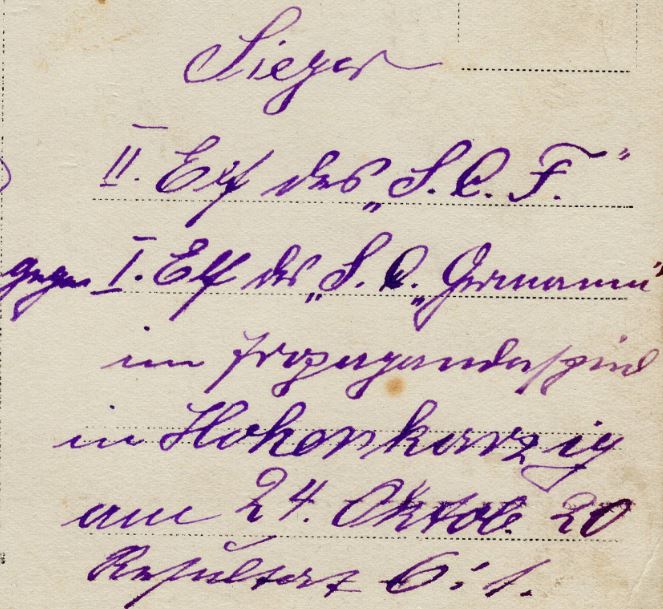 Sieger
II. Elf des „S. C. F."
gegen I. Elf des „S. C. „Germania"
im Propagandaspiel
in Hohenkarzig
am 24. Oktob. 20
Resultat 6:1.